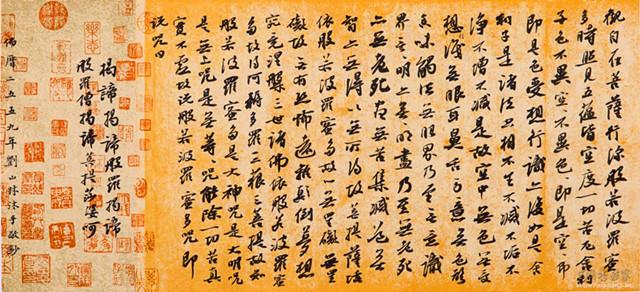 觀自在菩薩行深般若波羅蜜
多時照見五蘊皆空度一切苦厄舍利
子色不異空空不異色色即是空空
即是色受想行識亦復如是舍
利子是諸法空相不生不滅不垢不
淨不增不減是故空中無色無受
想行識無眼耳鼻舌身意無色聲
香味觸法無眼界乃至無意識
界無無明亦無無明盡乃至無老死
亦無老死盡無苦集滅道無
智亦無得以無所得故菩提薩埵
依般若波羅蜜多故心無罣礙無罣
礙故無有恐怖遠離顛倒夢想
究竟涅槃三世諸佛依般若波羅蜜
多故得阿耨多羅三藐三菩提故知
般若波羅蜜多是大神咒是大明咒
是無上咒是無等等咒能除一切苦真
實不虛故說般若波羅蜜多咒即
說咒曰
揭諦揭諦般羅揭諦
般羅僧揭諦菩提莎婆呵
佛曆二五五九年劉山林沐手敬抄